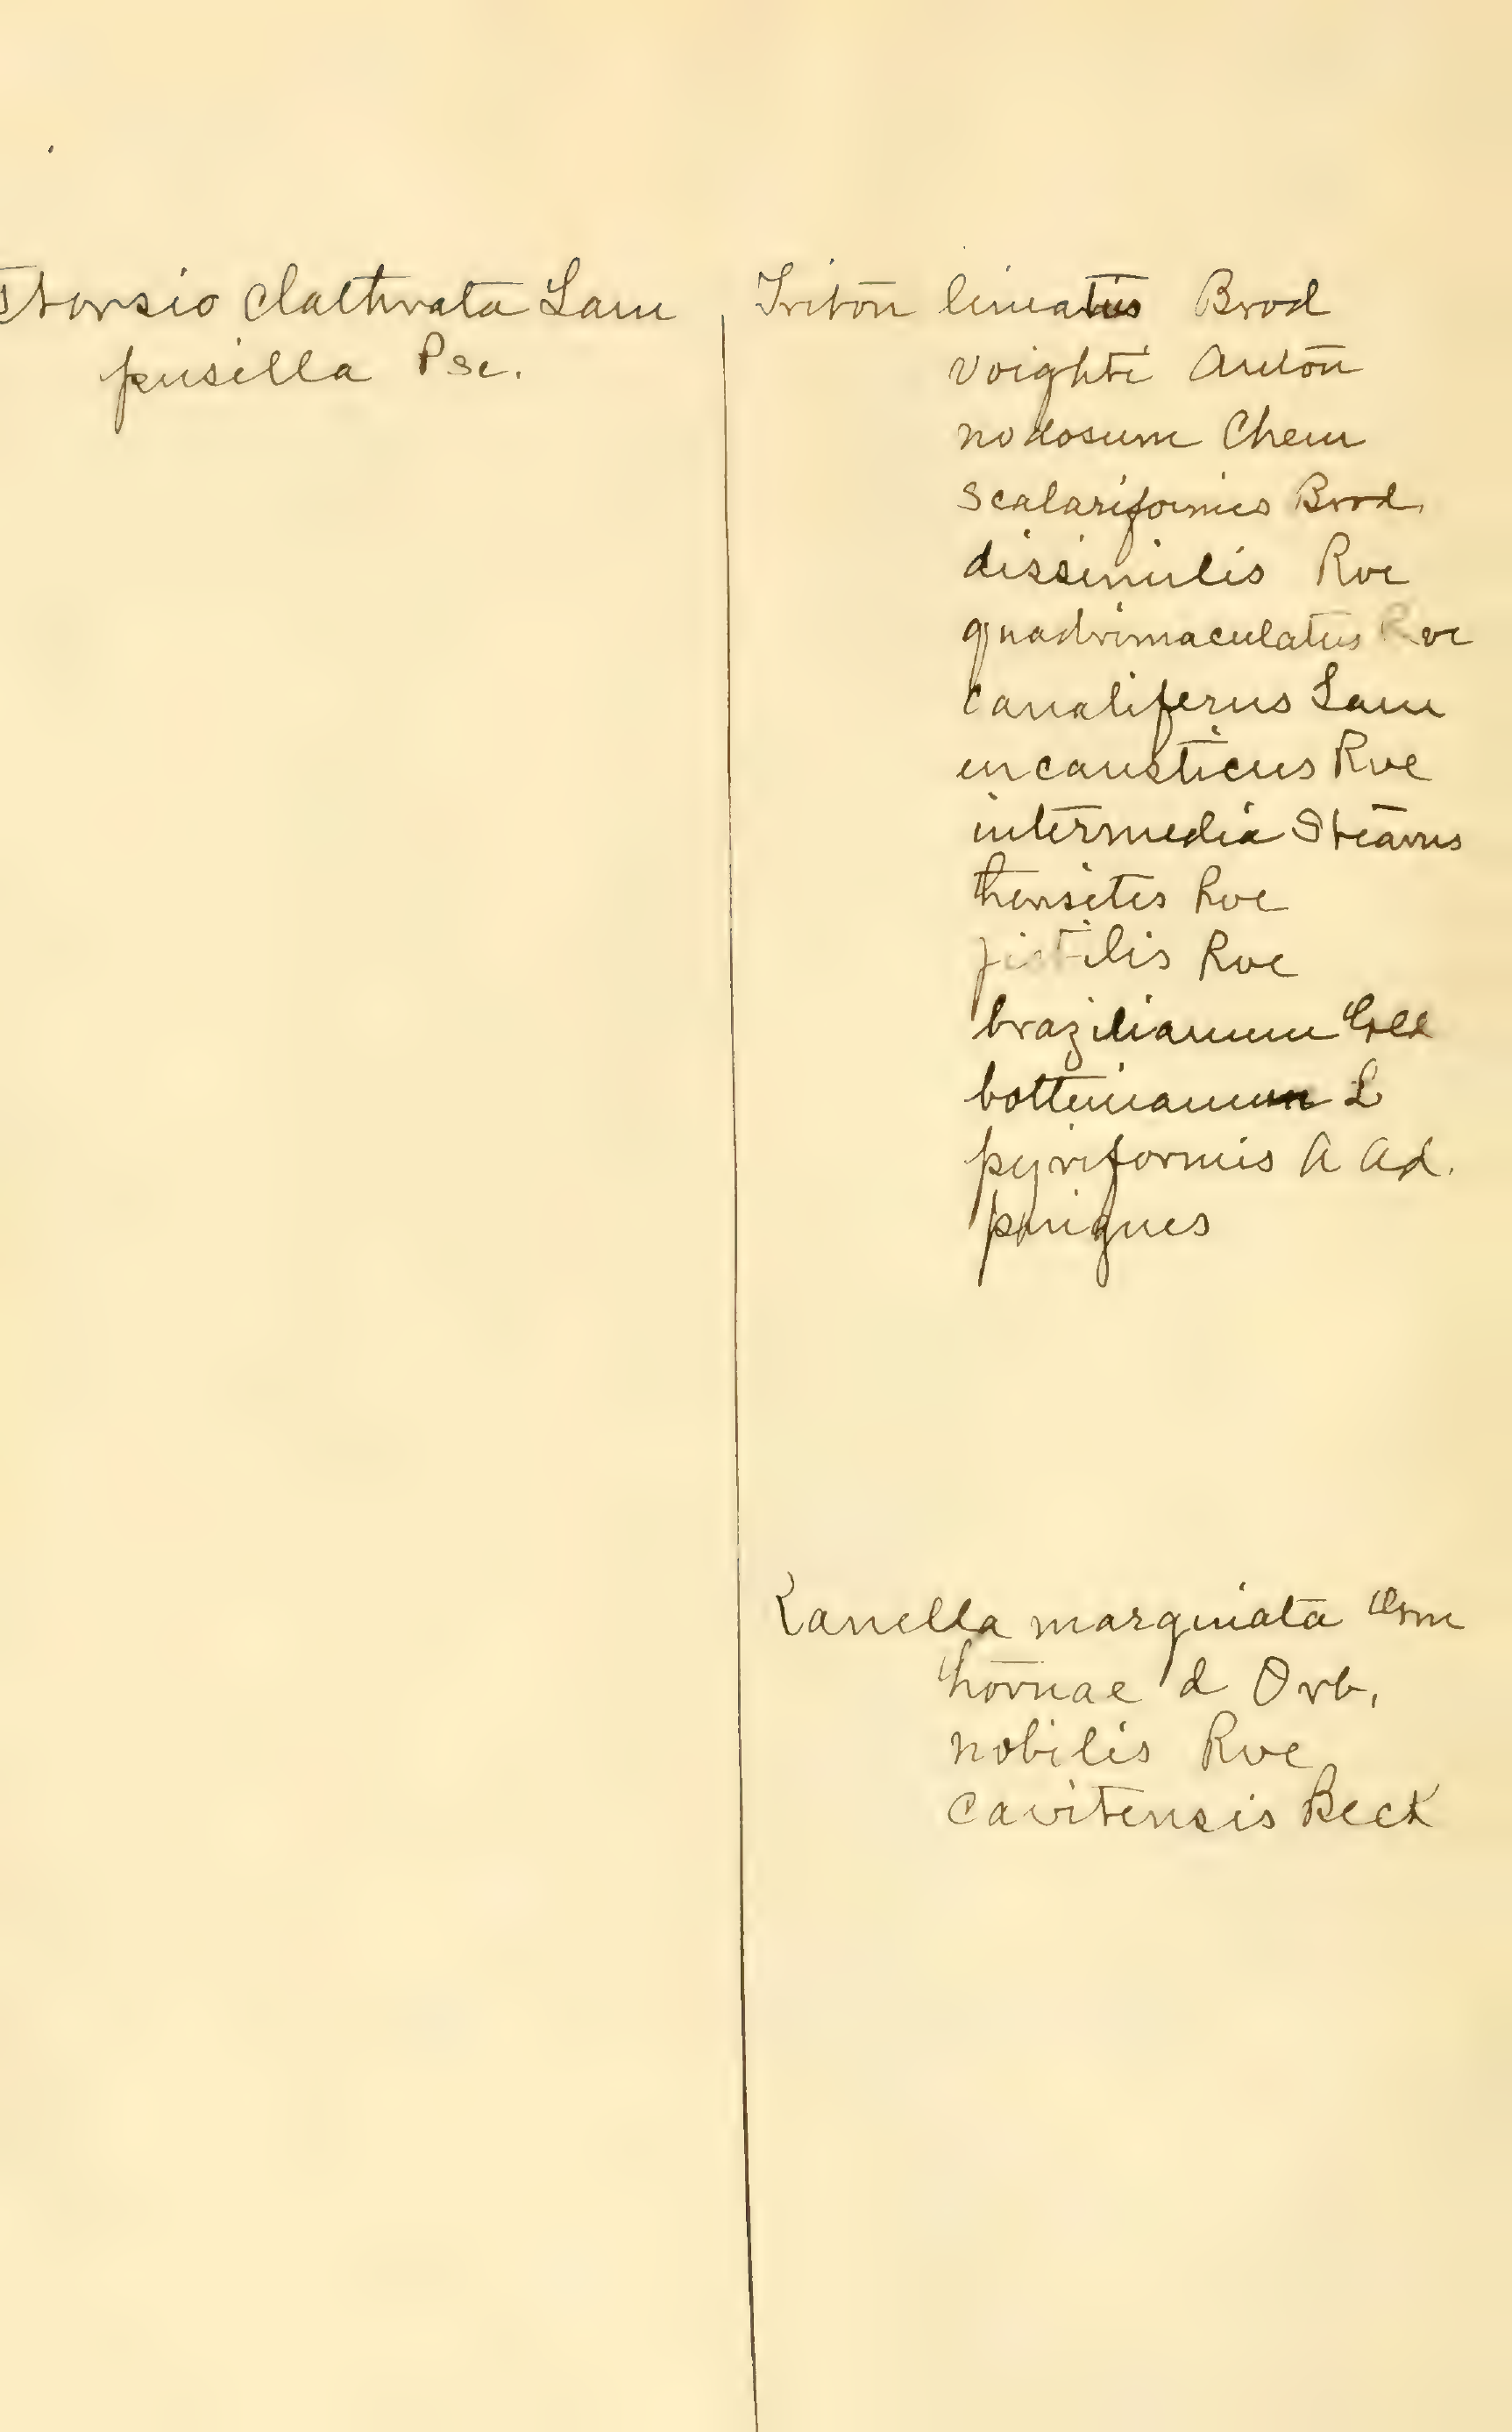 Distorsio clathrata Lam
pusilla Pse.
Triton lineatus Brod
voighti Anton
nodosum Chem
scalariformis Brod.
dissimilis Rve
quadrimaculatus Rve
canaliferus Lam
encausticus Rve
intermedia Stearns
thersites Rve
fictilis Rve
brazilianum Gld
bottenianum L
pyriformis A Ad.
pinques
Ranella marginata
thornae d Orb.
nobilis Rve
cavitensis Beck